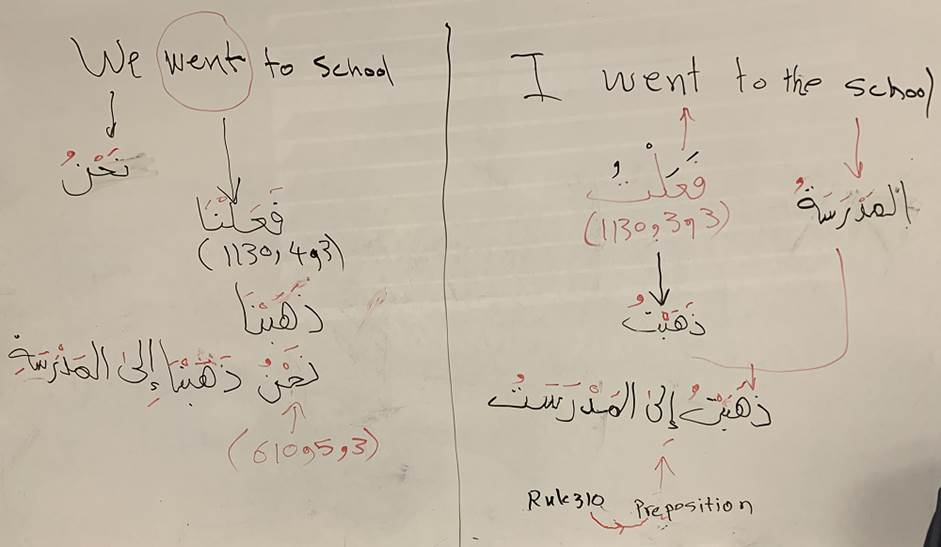 We went to School
نَحْنُ
فَعَلْنَا
(1130, 4و3)
ذَهَبْنَا
نَحْنُ ذَهَبْنَا إِلىٰ المَدْرَسَةِ
(610و5و3)
I went to the school
فَعَلْتُ
(1130و3و3)
المَدْرَسَةُ
ذَهَبْتُ
ذَهَبْتُ إِلىٰ المَدْرَسَتُ
Rule310 Preposition